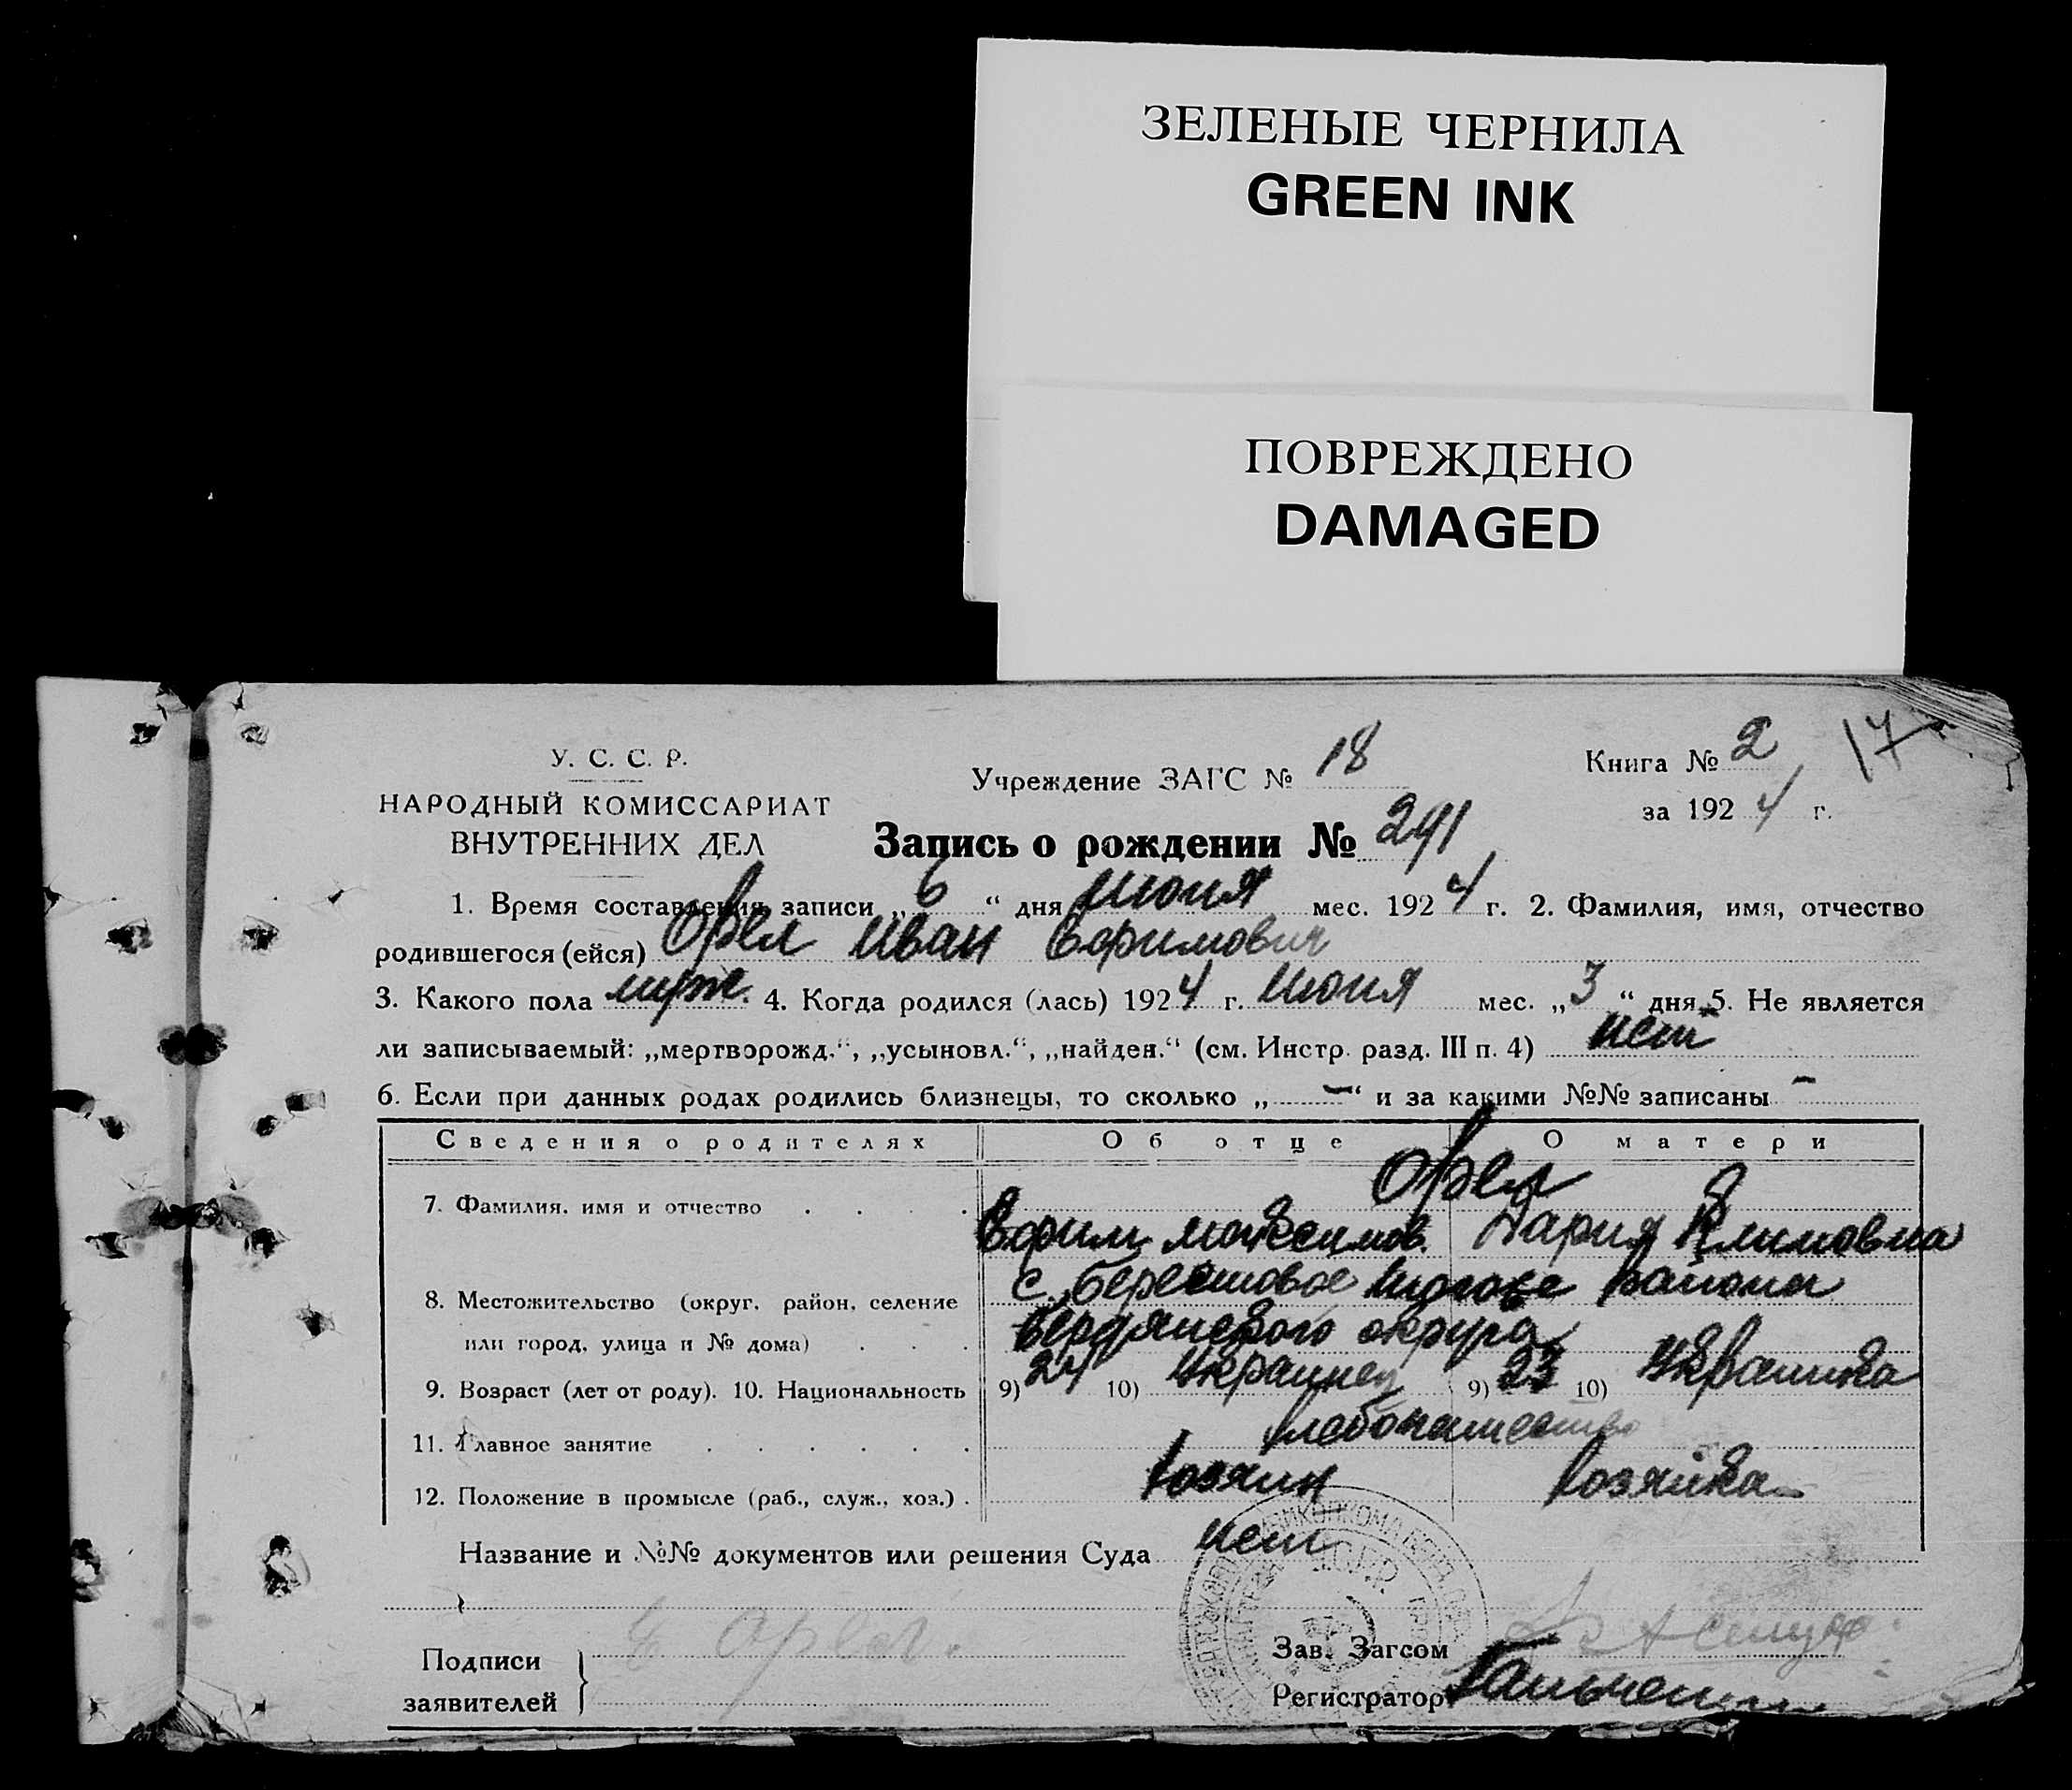 ЗЕЛЕНЫЕ ЧЕРНИЛА
GREEN INK
ПОВРЕЖДЕНО
DAMAGED
У. С. С. Р.
НАРОДНЫЙ КОМИССАРИАТ
ВНУТРЕННИХ ДЕЛ
Учреждение ЗАГС № 18
Книга № 2
17
за 1924 г.
Запись о рождении № 241
1. Время составления записи „ 6 “ дня июня мес. 1924 г. 2. Фамилия, имя, отчество
родившегося (ейся) Орел Иван Ефимович
3. Какого пола муж. 4. Когда родился (лась) 1924 г. июня мес. „ 3 “ дня 5. Не является
ли записываемый: „мертворожд.“, „усыновл.“, „найден.“ (см. Инстр. разд. III п. 4) нет
6. Если при данных родах родились близнецы, то сколько „ – “ и за какими №№ записаны –
Сведения о родителях Об отце О матери
Орел
7. Фамилия, имя и отчество Ефим Максимов. Дария Климовна
8. Местожительство (округ, район, селение с. Берестовое района
или город, улица и № дома) Бердянского округа
9. Возраст (лет от роду). 10. Национальность 9) 24 10) Украинец 9) 23 10) Украинка
11. Главное занятие хлебопашество
12. Положение в промысле (раб., служ., хоз.) хозяин хозяйка
Название и №№ документов или решения Суда нет
Подписи
заявителей
Е Орел.
Зав. Загсом
Регистратор